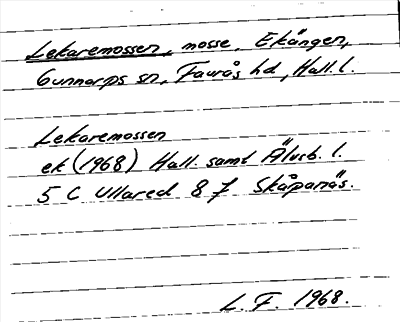 Lekaremossen, mosse, Ekången,
Gunnarps sn, Faurås hd, Hall. l.
Lekaremossen
ek (1968) Hall. samt Älvsb. l.
5 C Ullared 8 f Skåpanäs.
L. F. 1968.